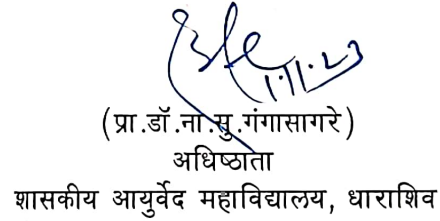 1.11.23
(प्रा.डॉ.ना.सु.गंगासागरे)
अधिष्ठाता
शासकीय आयुर्वेद महाविद्यालय, धाराशिव